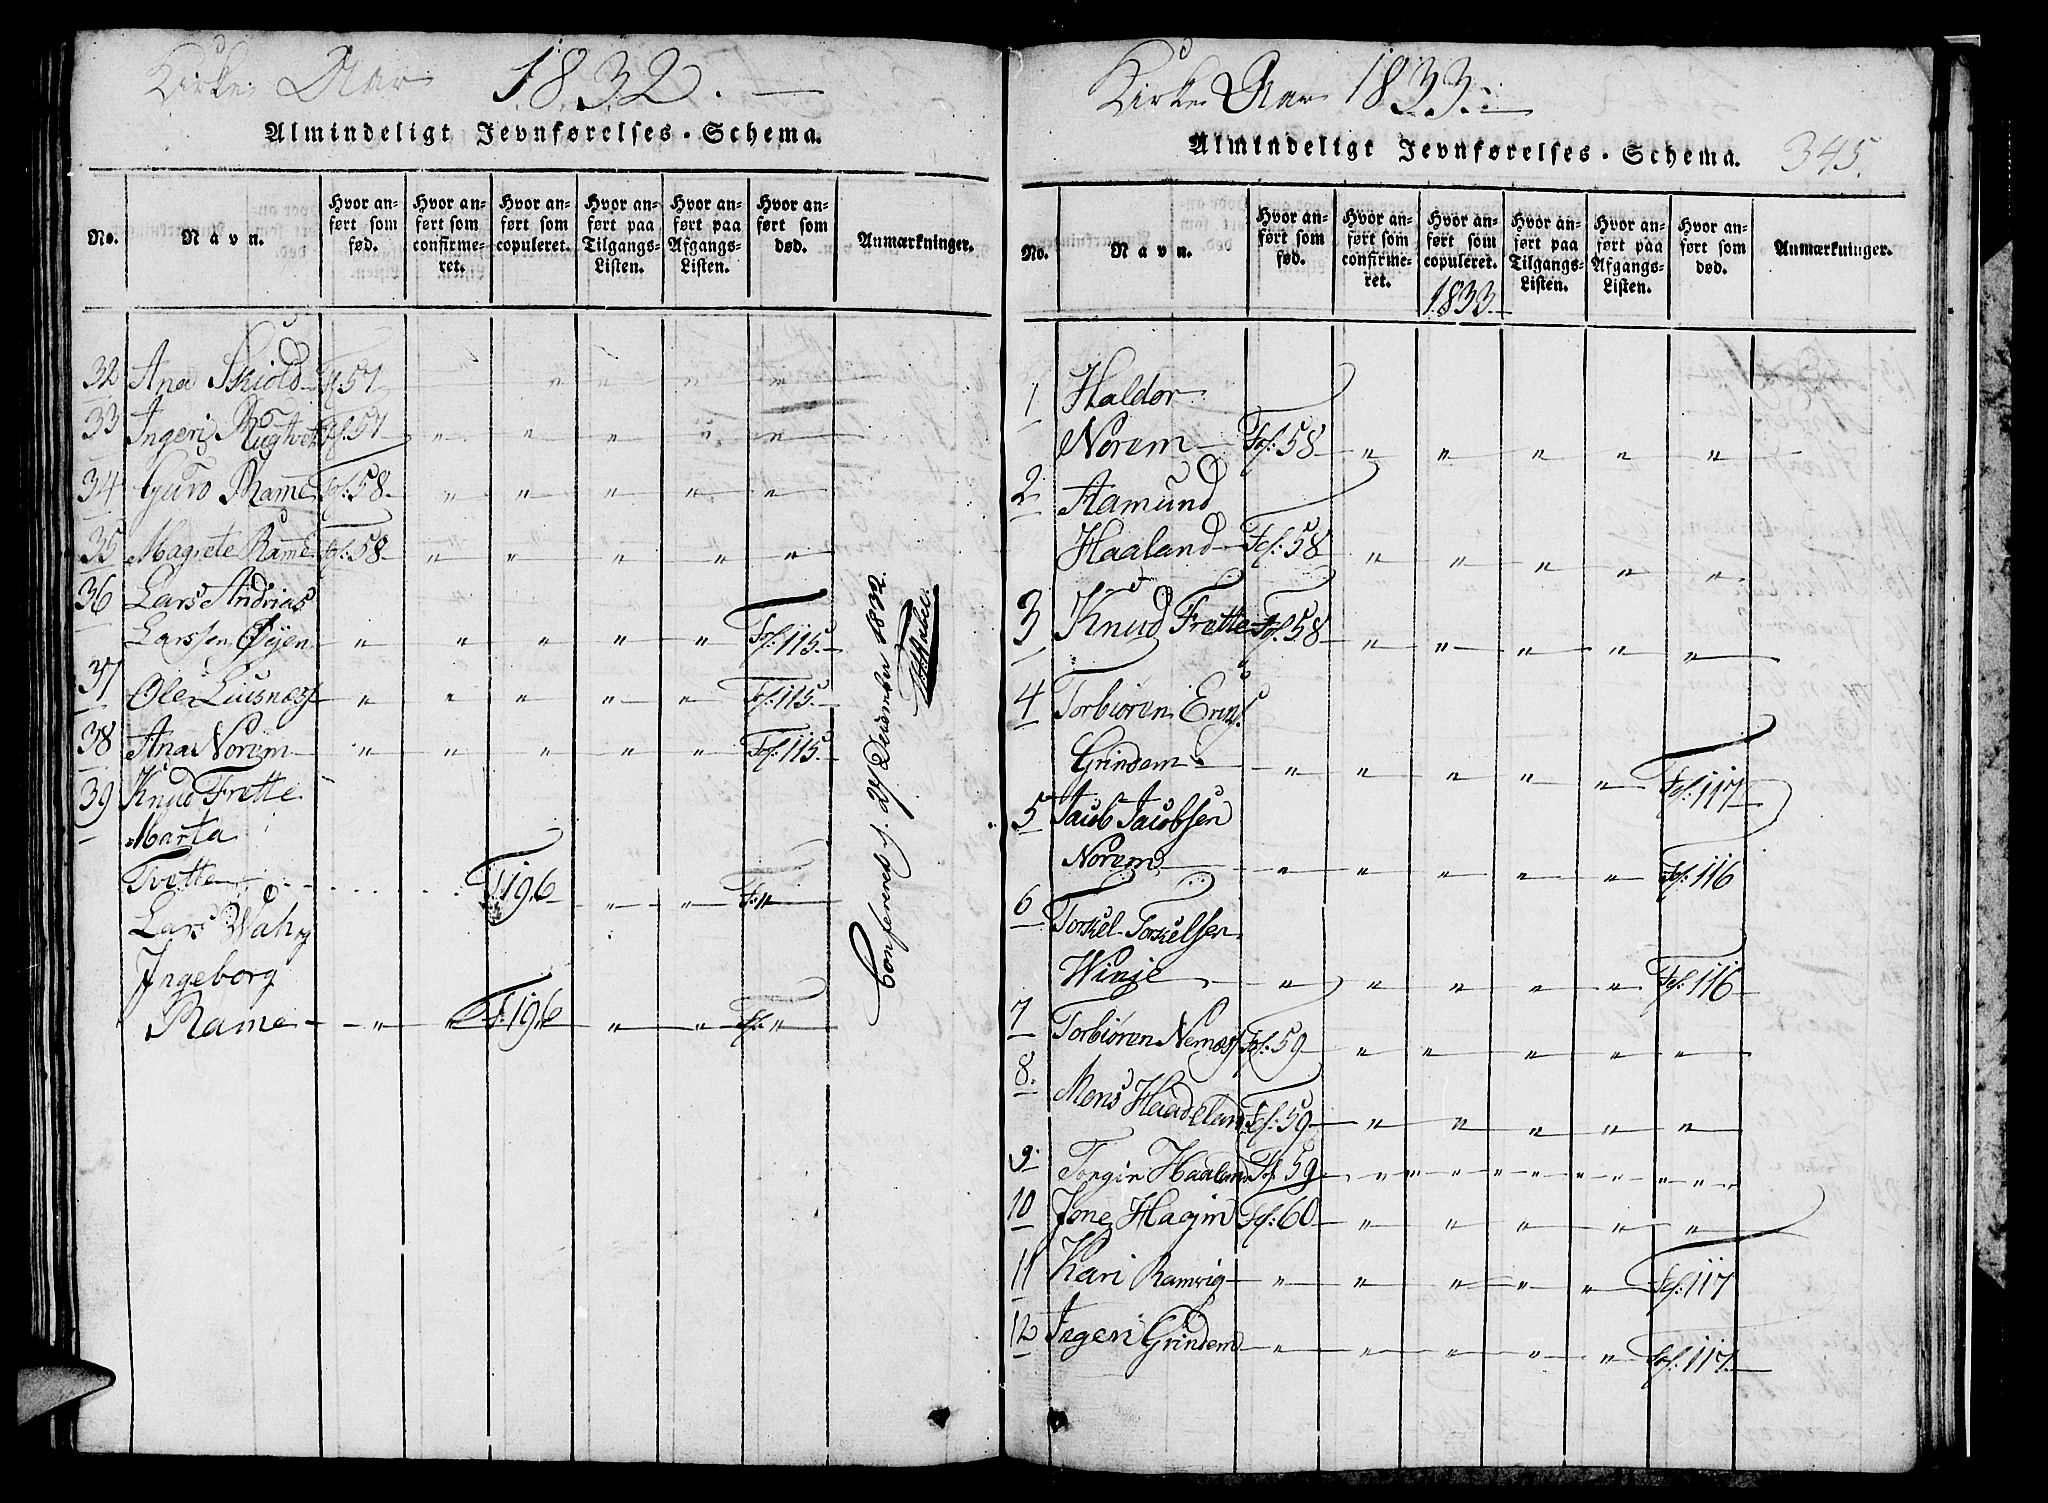 Kirke Aar 1832.
Almindeligt Jevnførelses-Schema.
No.
Navn.
Hvor anført som fød.
Hvor anført som confirmeret.
Hvor anført som copuleret.
Hvor anført paa Tilgangs-Listen.
Hvor anført paa Afgangs-Listen.
Hvor anført som død.
Anmærkninger.
32 Ana Skiold Tf 57 " " " " "
33 Ingeri Rugtvet Tf. 57 " " " " "
34 Guro Rame Fol. 58 " " " " "
35 Magrete Rame Fol. 58 " " " " "
36 Lars Andrias
Larssen Øyen " " " " " Fol. 115
37 Ole Liusness " " " " " Fol. 115
38 Ana Norem " " " " " Fol. 115
39 Knud Frette
Marta
Tvette F. 196 " " F. "
Lars Wahg
Ingeborg
Rame " " F. 196 " " F. "
Confereret d. 27 December 1832.
Kirke Aar 1833.
345.
Almindeligt Jevnførelses-Schema.
No.
Navn.
Hvor anført som fød.
Hvor anført som confirmeret.
Hvor anført som copuleret.
1833
Hvor anført paa Tilgangs-Listen.
Hvor anført paa Afgangs-Listen.
Hvor anført som død.
Anmærkninger.
1 Haldor
Norem Fol. 58 " " " " "
2 Aamund
Haaland Fol. 58 " " " " "
3 Knud Frette Fol. 58 " " " " "
4 Torbiøren
Grindem " " " " " Fol. 117
5 Jacob Jacobsen
Norem " " " " " Fol. 116
6 Torskel Torskelsen
Winje " " " " " Fol. 116
7 Torbiøren Nernæss Fol. 59 " " " " "
8. Mons Haadeland Fol. 59 " " " " "
9. Torgir Haaland Fol. 59 " " " " "
10 Jone Hagin Fol. 60 " " " " "
11 Kari Ramvig " " " " " Fol. 117
12 Ingeri Grindem " " " " " Fol. 117.